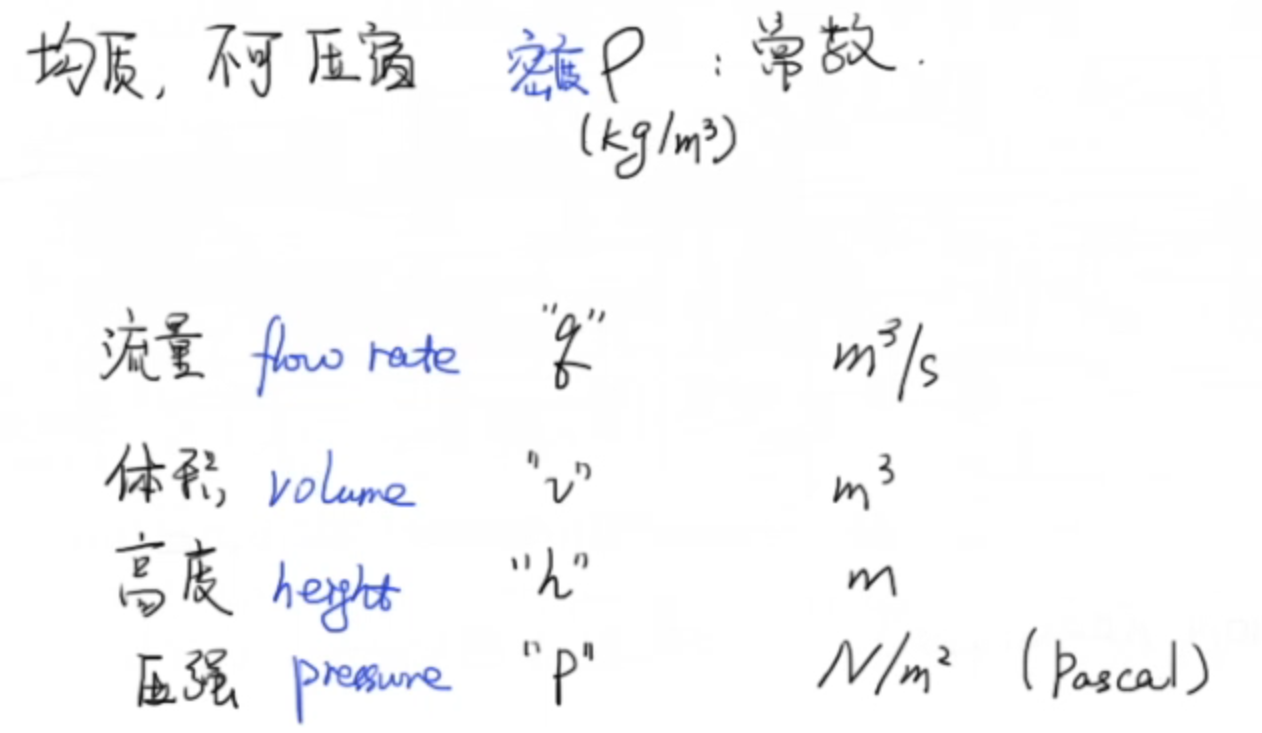 均质, 不可压缩 密度 ρ : 常数.
(kg/m³)
流量 flow rate "q" m³/s
体积 volume "v" m³
高度 height "h" m
压强 pressure "p" N/m² (Pascal)